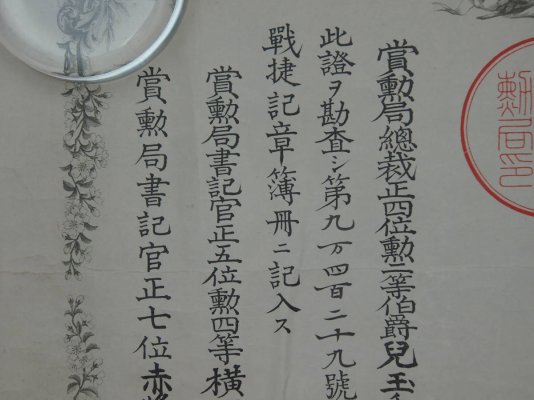 賞勲局總裁正四位勲二等伯爵兒玉
此證ヲ勘査シ第九万四百二十九號
戰捷記章簿冊ニ記入ス
賞勲局書記官正五位勲四等橫
賞勲局書記官正七位赤